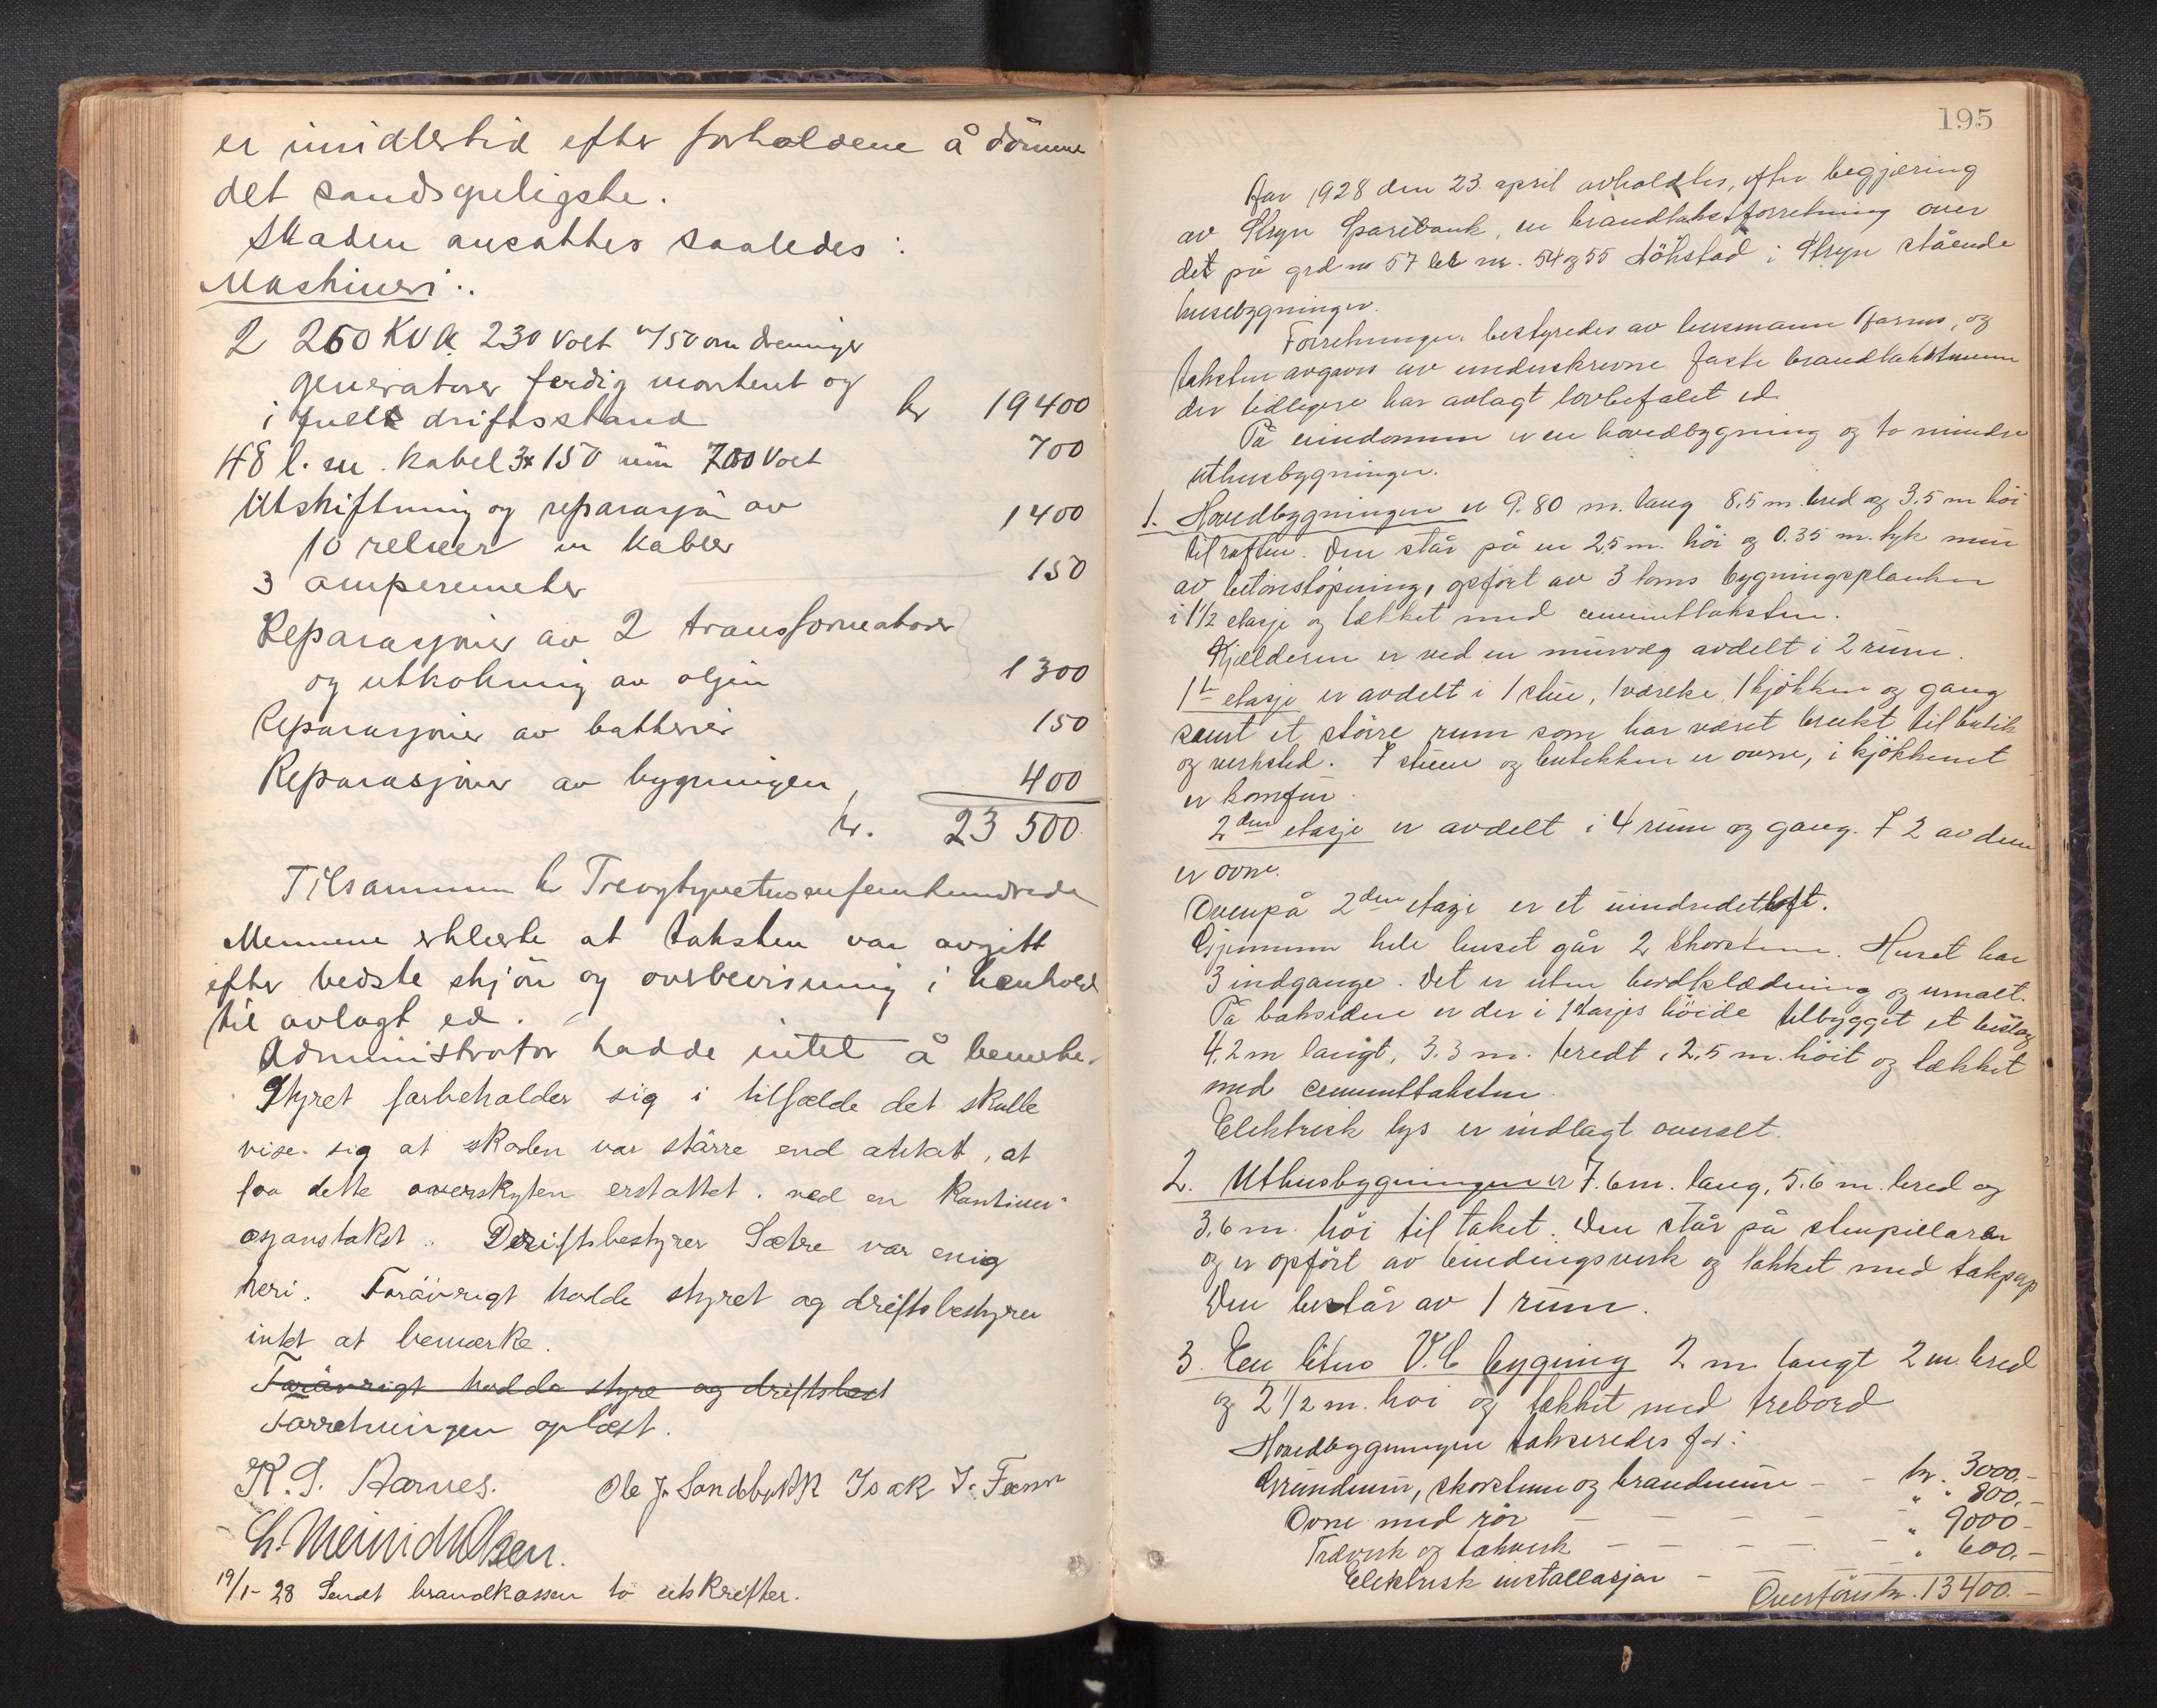 er imidlertid efter forholdene å dömme
det sandsynligste.
Skaden ansattes saaledes :
Maskineri :.
2 260 KVA 230 Volt 750 omdreininger
generatorer færdig montert og
i fuld driftsstand kr 19400
48 l. m. kabel 3x150 mm 700 Volt 700
Utskiftning og reparasjon av
10 releer m kabler 1400
3 amperemeter 150
Reparasjoner av 2 transformatorer
og utkokning av oljen 1300
Reparasjoner av batterier 150
Reparasjoner av bygningen, 400
kr. 23 500
Tilsammen kr Treogtyvetusenfemhundrede
Mennene erklærte at taksten var avgitt
efter bedste skjön og overbevisning i henhold
til avlagt ed.
Administrator hadde intet å bemerke.
Styret forbeholder sig i tilfælde det skulle
vise sig at skaden var större end antat, at
faa dette overskyten erstattet ved en
Driftsbestyrer Sætre var enig
heri. Forövrigt hadde styret og driftsbestyrer
intet at bemærke.
Forövrigt hadde styre og driftsbest
Forretningen oplæst.
K. S. Aarnes. Ole J. Sandsbakk Isak J.
Ch. Meinich Olsen.
19/1-28 Sendt brandkassen to utskrifter.
195
Aar 1928 den 23. april avholdtes, efter begjæring
av Stryn Sparebank, en brandtakstforretning over
det på grd nr 57 br nr. 54 og 55 Lökstad i Stryn stående
husebygninger.
Forretningen bestyredes av lensmann Aarnes, og
taksten avgaves av underskrevne faste brandtakstmenn
der tidligere har avlagt lovbefalet ed.
På eiendommen er en hovedbygning og to mindre
uthusbygninger.
1. Hovedbygningen er 9.80 m. lang 8,5 m. bred og 3.5 m höi
til raften. Den står på en 2,5 m. höi og 0.35 m. tyk mur
av betonstöpning, opfört av 3 toms bygningsplanker
i 1 1/2 etasje og tækket med cementtaksten.
Kjelderen er ved en murvæg avdelt i 2 rum.
1ste etasje er avdelt i 1 stue, 1 værelse, 1 kjökken og gang
samt et större rum som har været brukt til butik
og verksted. I stuen og butikken er ovne, i kjökkenet
er komfur.
2den etasje er avdelt i 4 rum og gang. I 2 av dem
er ovne.
Ovenpå 2den etasje er et uindredet loft.
Gjennem hele huset går 2 skorstene. Huset har
3 indgange. Det er uten bordklædning og umalt.
På baksiden er der i 1 etasjes höide tilbygget et bislag
4,2 m langt, 3.3 m. bredt, 2,5 m. höit og tækket
med cementtaksten.
Elektrisk lys er indlagt overalt.
2. Uthusbygningen er 7.6 m. lang, 5.6 m. bred og
3,6 m. höi til taket. Den står på stenpillarer
og er opfört av bindingsverk og tækket med takpap
Den består av 1 rum.
3. En liten V.C bygning 2 m langt 2 m. bred
og 2 1/2 m. höi og tækket med trebord
Hovedbygningen takseredes for:
Grundmur, skorstene og brandmure - - kr. 3000.-
Ovne med rör - - - - " " 800.-
Træverk og takverk - - - - " 9000-
Elektrisk installasjon - - - " 600.-
Overföres kr. 13400.-